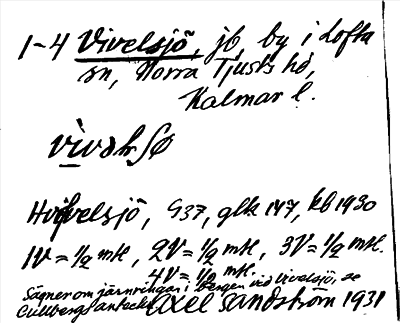 1-4 Vivelsjö, jb, by i Lofta
sn, Norra Tjusts hd,
Kalmar l.
Hvifvelsjö, G37, glk 147, kb 1930
1V = 1/2 mtl, 2V = 1/2 mtl, 3V = 1/2 mtl.
4V = 1/2 mtl.
Sägner om järnringar i bergen vid Vivelsjö, se
Cullbergs anteckn. Axel Sandström 1931